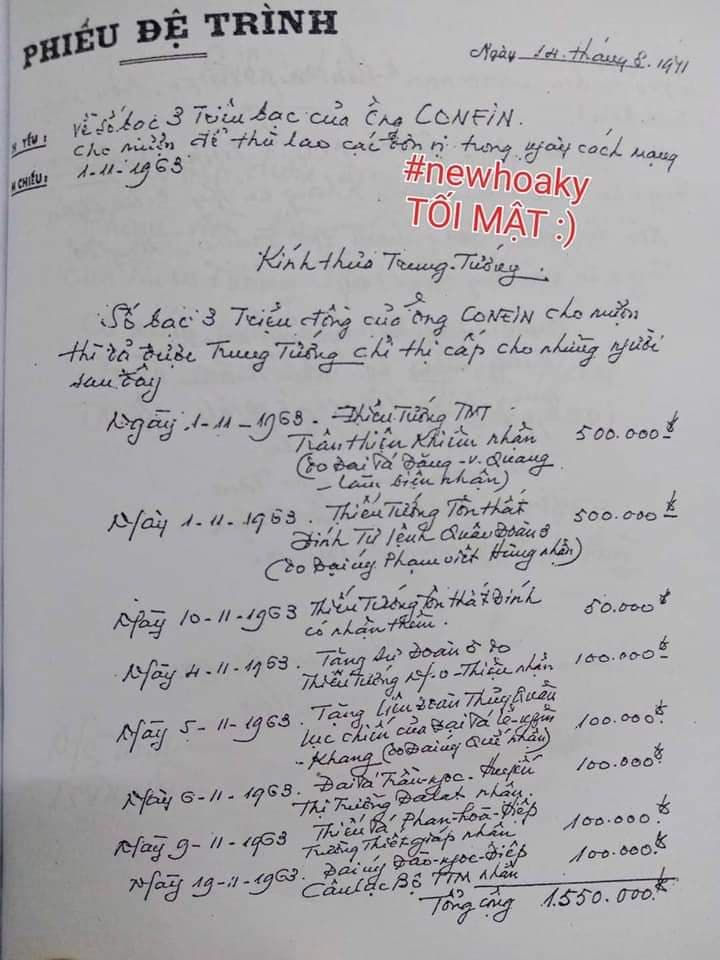 PHIẾU ĐỆ TRÌNH
Ngày 14 tháng 8. 1971
YẾU :
Về Số bạc 3 Triệu bạc của Ông CONEIN.
cho mượn để thù lao các đơn vị trong ngày cách mạng
CHIẾU :
1-11-1963
#newhoaky
TỐI MẬT :)
Kính thưa Trung-Tướng.
Số bạc 3 Triệu đồng của Ông CONEIN cho mượn
thì đã được Trung Tướng chỉ thị cấp cho những người
sau đây
Ngày 1-11-1963 - Thiếu Tướng TMT
Trần thiện Khiêm nhận 500.000$
(do Đại Tá Đặng-v. Quang
làm biên nhận)
Ngày 1-11-1963. Thiếu Tướng Tôn thất 500.000$
Đính Tư lệnh Quân Đoàn 3
(do Đại úy Phạm viết Hùng nhận)
Ngày 10-11-1963 Thiếu Tướng Tôn thất Đính 50.000$
có nhận thêm.
Ngày 4-11-1963. Tặng Sư Đoàn 5 do 100.000$
Thiếu Tướng Ng. v-Thiệu nhận
Ngày 5-11-1963. Tặng liên Đoàn Thủy Quân 100.000$
lục chiến của Đại Tá lê-nguyên
-Khang (do Đại úy Quế nhận)
Ngày 6-11-1963. Đại Tá Trần-ngọc-Huyến 100.000$
Thị Trưởng Dalat nhận.
Ngày 9-11-1963 Thiếu Tá Phan-hoà-Hiệp 100.000$
Trường Thiết giáp nhận
Ngày 19-11-1963. Đại úy Đào-ngọc-Điệp 100.000$
Câu lạc Bộ TTM nhận
Tổng cộng 1.550.000$